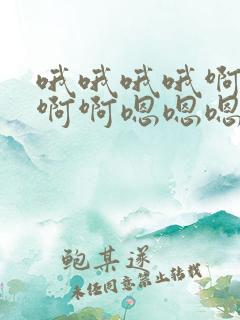 哦哦哦哦啊
啊啊嗯嗯嗯
鲍某遂
未经同意禁止转载